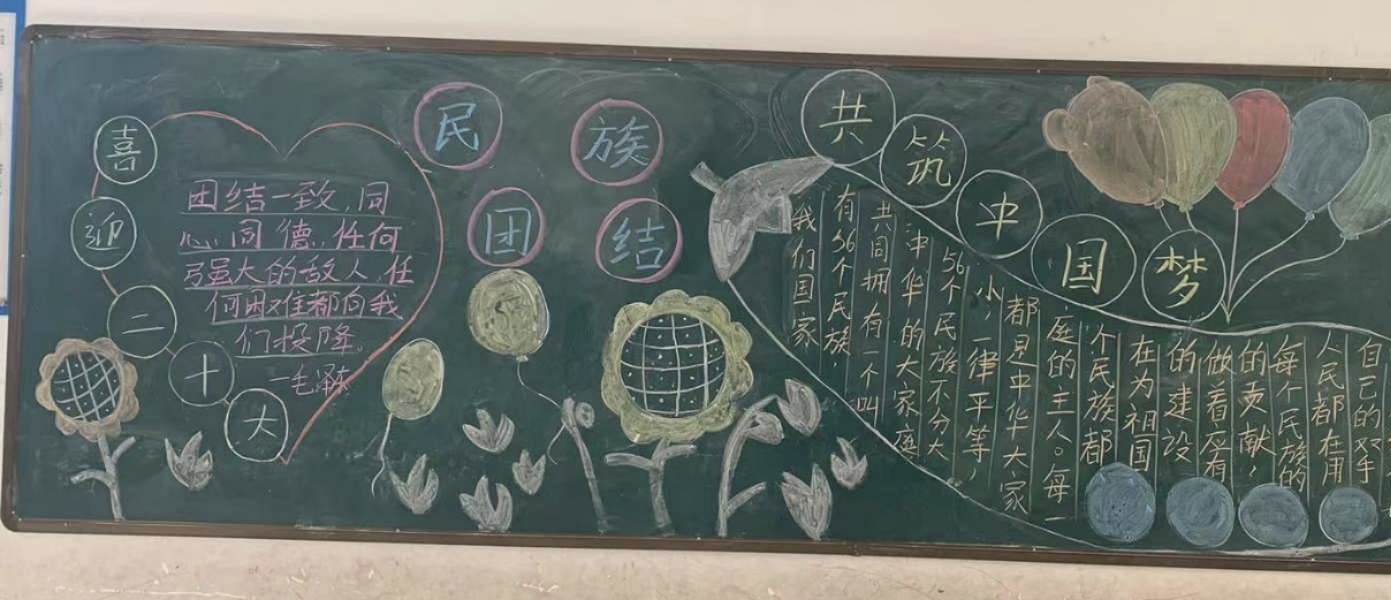 喜迎二十大
团结一致,同
心同德,任何
强大的敌人,任
何困难都向我
们投降。
—毛泽东
民族
团结
共筑中国梦
我们国家
有56个民族,
共同拥有一个叫
中华的大家庭
56个民族不分大
小,一律平等,
都是中华大家
庭的主人。每一
个民族都
在为祖国
的建设
做着应有
的贡献,
每个民族的
人民都在用
自己的双手